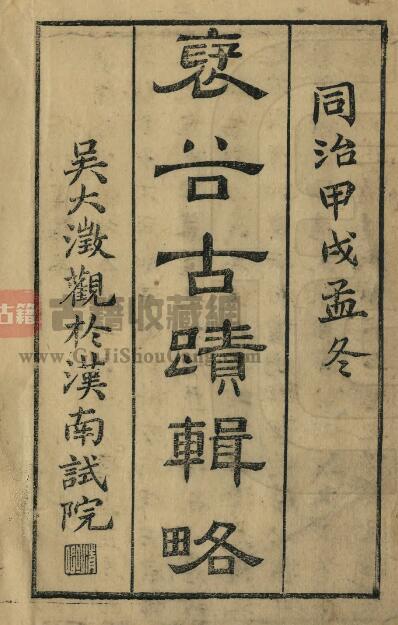 同治甲戌孟冬
褒谷古蹟輯略
吳大澂觀於漢南試院
古籍
古籍收藏網
www.GuJiShouCang.com